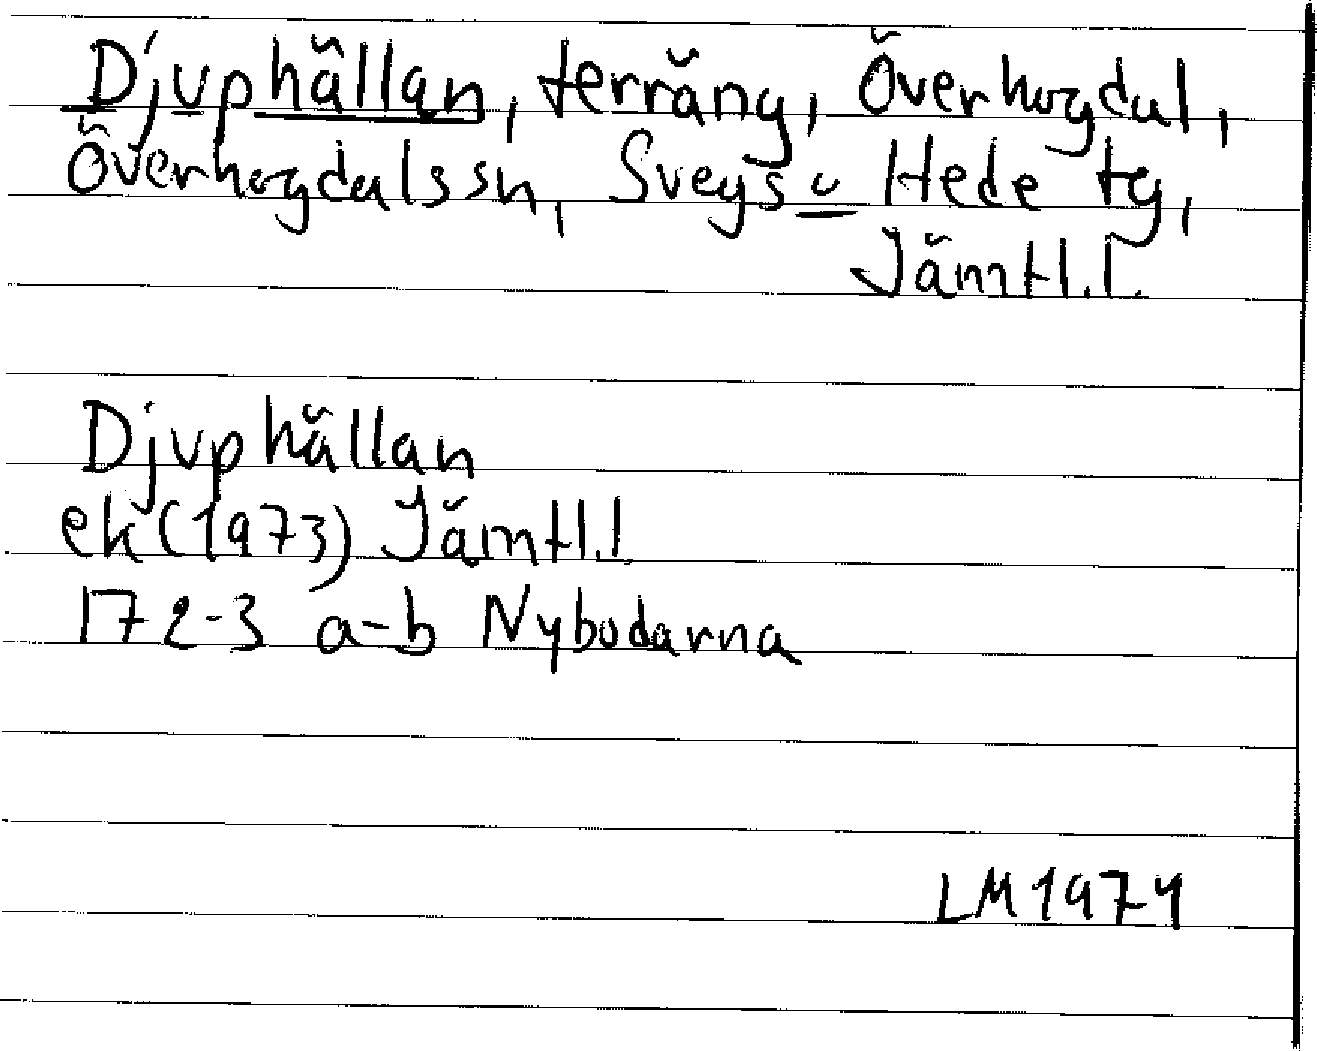 Djuphällan, terräng, Överhogdal,
Överhogdals sn, Svegs o Hede tg,
Jämtl.l.
Djuphällan
ek (1973) Jämtl.l
17 2-3 a-b Nybodarna
LM 1974